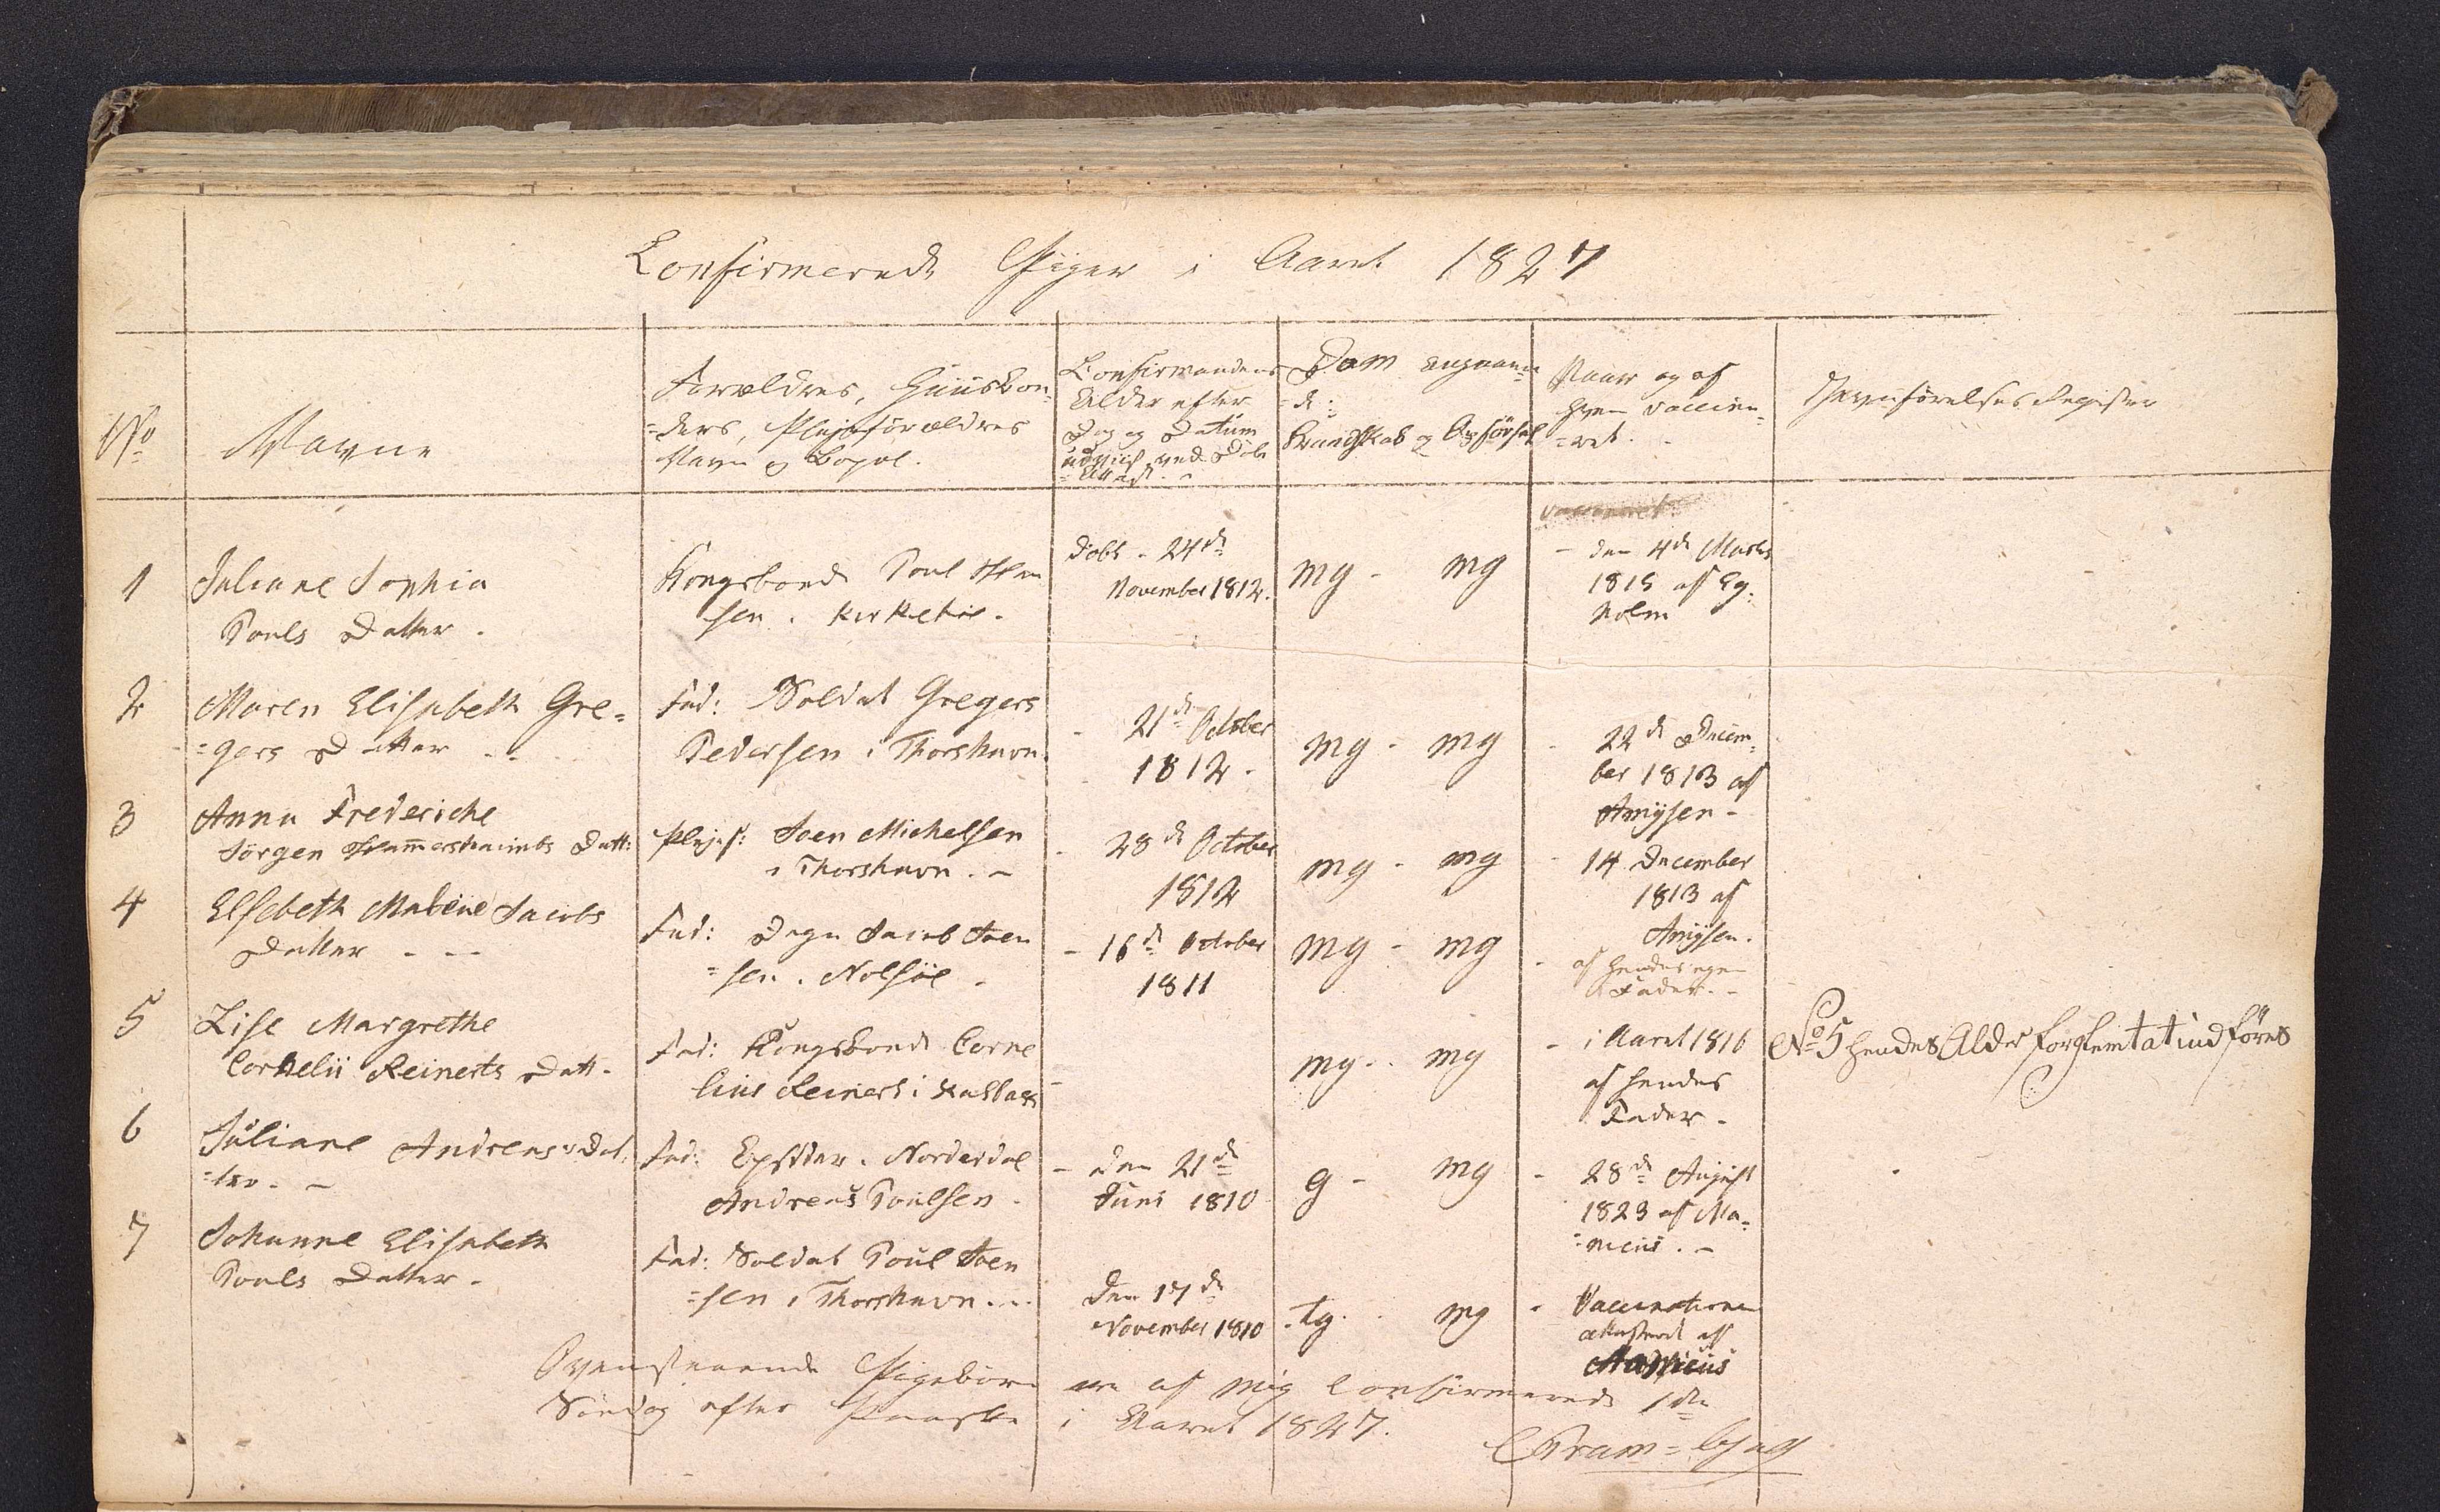 Confirmerede Piger i Aaret 1827
No
Navne
Forældres, Huusbon-
=ders, Plejeforældres
Navn og Bopæl.
Confirmandens
Alder efter
Dag og Datum
udviist ved Døbe
=Attest.
Dom angaaen
=de:
Kundskab og Opførsel
Naar og af
hvem vaccine-
=ret.
Jevnførelses Register
1
Juliane Sophia
Pouls Datter.
Kongsbonde Poul
sen. Kirkebøe.
døbt. 24de
November 1812.
mg - mg
- den 4de Marts
1815 af Eg-
holm
2
Maren Elisabeth Gre=
=gers Datter
Fad: Soldat Gregers
Pedersen i Thorshavn.
- 21de October
1812.
mg - mg
22de Decem-
ber 1813 af
Arnysen -
3
Anna Frederiche
Jörgen Hammershaimbs Datt:
Plejef: Joen Michelsen
i Thorshavn. -
- 28de October
1812
mg - mg
14 December
1813 af
Arnysen.
4
Elsebeth Malene Jacobs
Datter - --
Fad: Degn Jacob Joen
=sen. Nolsöe -
- 16de October
1811
mg - mg
- af hendes egen
Fader. -
5
Lise Margrethe
Cornelii Reinerts Datt.
Fad: Kongsbonde Corne
lius Reinert i Kalbak
mg - mg
- i Aaret 1816
af hendes
Fader -
No 5 hendes Alder forglemt at indføres
6
Juliane Andreas Dat
=ter. -
Fad: Norderdal
Andreas Poulsen -
- den 21de
Juni 1810
g - mg
- 28de August
1823 af Ma-
=nicus. -
7
Johanne Elisabeth
Pouls Datter -
Fad: Soldat Poul Joen
=sen i Thorshavn. -
den 17de
November 1810
tg. mg
Vaccinationen
attesteret af
Manicus
Ovenstaaende Pigebørn ere af mig confirmerede 1ste
Søndag efter Paaske i Aaret 1827.